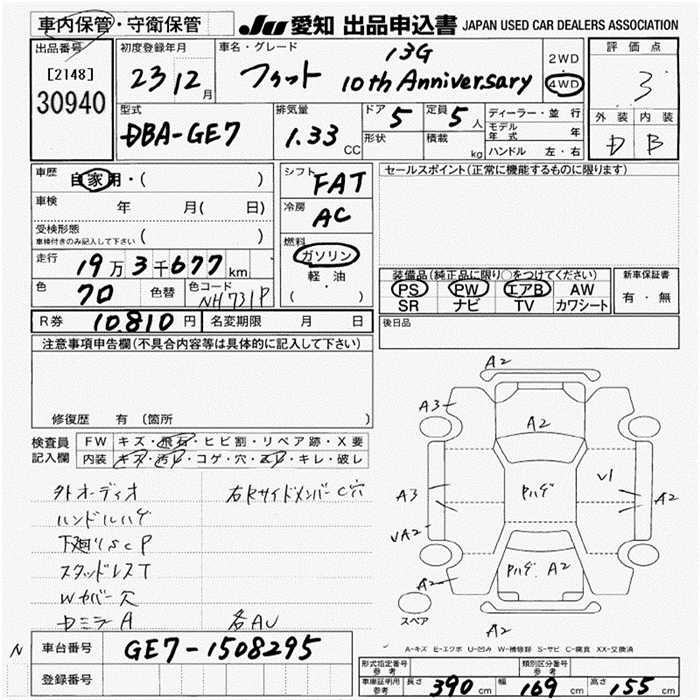 車内保管・守衛保管 JU 愛知 出品申込書 JAPAN USED CAR DEALERS ASSOCIATION
出品番号
[2148]
30940
初度登録年月
23 12月
車名・グレード
フィット 13G
10th Anniversary
2WD
4WD
評価点
3
外装 内装
D B
型式
DBA-GE7
排気量
1.33 CC
ドア 5
形状
定員 5人
積載 kg
ディーラー・並行
モデル年式 年
ハンドル 左・右
車歴
自家用・( )
車検 年 月( 日)
受検形態
車検付きのみ記入して下さい ( )
走行 19万3千677km
色 70 色替 色コード NH731P
シフト FAT
冷房 AC
燃料
ガソリン
軽・油
( ・ )
セールスポイント(正常に機能するものに限ります)
装備品(純正品に限り○をつけてください)
PS PW エアB AW
SR ナビ TV カワシート
新車保証書
有・無
R券 10,810円 名変期限 月 日
後日品
注意事項申告欄(不具合内容等は具体的に記入して下さい)
修復歴 有 〔箇所 〕
検査員記入欄
FW キズ・飛石・ヒビ割・リペア跡・X要
内装 キズ・汚レ・コゲ・穴・スレ・キレ・破レ
外オーディオ
ハンドルハゲ
下廻りSCP
スタッドレスT
Wカバー穴
右RサイドメンバーC穴
各AU
A2
A3
A2
A3
Pハゲ
V1
A2
VA2
Pハゲ A2
A2
スペア
A2
A-キズ E-エクボ U-凹み W-補修跡 S-サビ C-腐食 XX-交換済
N
車台番号 GE7-1508295
登録番号
形式指定番号 参考
類別区分番号 参考
車庫証明用 参考 長さ 390cm 幅 169cm 高さ 155cm